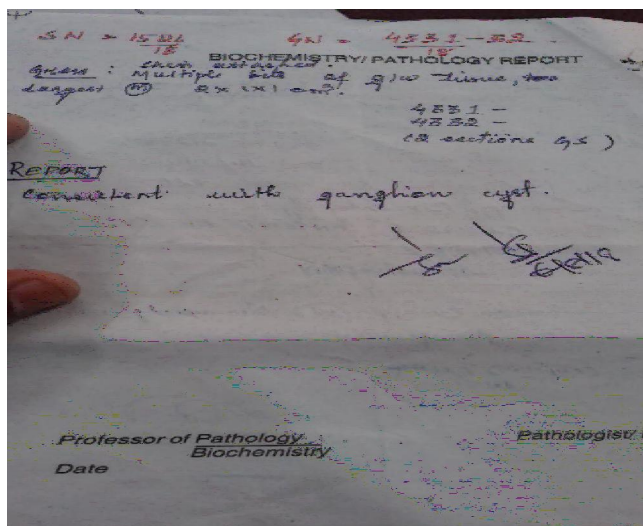 SN = 1521/18 GN = 4331-32/18
BIOCHEMISTRY/ PATHOLOGY REPORT
Gross : Multiple bits of g/w tissue,
largest (m) 2x1x1 cm³.
4331 -
4332 -
(2 sections GS)
REPORT
Consistent with ganglion cyst.
Professor of Pathology
Biochemistry
Pathologist/
Date